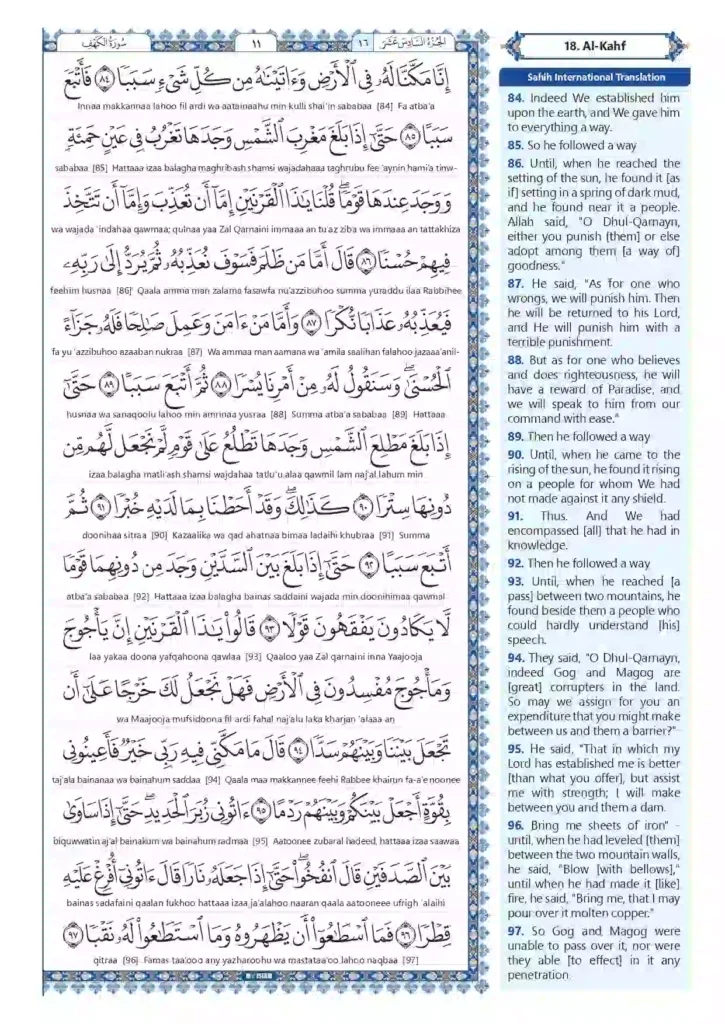 الجزء السادس عشر ١٦
١١
سورة الكهف
إِنَّا مَكَّنَّا لَهُۥ فِى ٱلْأَرْضِ وَءَاتَيْنَٰهُ مِن كُلِّ شَىْءٍ سَبَبًا ٨٤ فَأَتْبَعَ
Innaa makkannaa lahoo fil ardi wa aatainaahu min kulli shai'in sababaa [84] Fa atba'a
سَبَبًا ٨٥ حَتَّىٰٓ إِذَا بَلَغَ مَغْرِبَ ٱلشَّمْسِ وَجَدَهَا تَغْرُبُ فِى عَيْنٍ حَمِئَةٍ
sababaa [85] Hattaaa izaa balagha maghribash shamsi wajadahaaa taghrubu fee 'aynin hami'a tinw-
وَوَجَدَ عِندَهَا قَوْمًا قُلْنَا يَٰذَا ٱلْقَرْنَيْنِ إِمَّآ أَن تُعَذِّبَ وَإِمَّآ أَن تَتَّخِذَ
wa wajada 'indahaa qawmaa; qulnaa yaa Zal Qarnaini immaaa an tu'az ziba wa immaaa an tattakhiza
فِيهِمْ حُسْنًا ٨٦ قَالَ أَمَّا مَن ظَلَمَ فَسَوْفَ نُعَذِّبُهُۥ ثُمَّ يُرَدُّ إِلَىٰ رَبِّهِۦ
feehim husnaa [86] Qaala amma man zalama fasawfa nu'azzibuhoo summa yuraddu ilaa Rabbihee
فَيُعَذِّبُهُۥ عَذَابًا نُّكْرًا ٨٧ وَأَمَّا مَنْ ءَامَنَ وَعَمِلَ صَٰلِحًا فَلَهُۥ جَزَآءً
fa yu 'azzibuhoo azaaban nukraa [87] Wa ammaa man aamana wa 'amila saalihan falahoo jazaaa'anil-
ٱلْحُسْنَىٰ وَسَنَقُولُ لَهُۥ مِنْ أَمْرِنَا يُسْرًا ٨٨ ثُمَّ أَتْبَعَ سَبَبًا ٨٩ حَتَّىٰٓ
husnaa wa sanaqoolu lahoo min amrinaa yusraa [88] Summa atba'a sababaa [89] Hattaaa
إِذَا بَلَغَ مَطْلِعَ ٱلشَّمْسِ وَجَدَهَا تَطْلُعُ عَلَىٰ قَوْمٍ لَّمْ نَجْعَل لَّهُم مِّن
izaa balagha matli'ash shamsi wajdahaa tatlu'u alaa qawmil lam naj'al lahum min
دُونِهَا سِتْرًا ٩٠ كَذَٰلِكَ وَقَدْ أَحَطْنَا بِمَا لَدَيْهِ خُبْرًا ٩١ ثُمَّ
doonihaa sitraa [90] Kazaalika wa qad ahatnaa bimaa ladaihi khubraa [91] Summa
أَتْبَعَ سَبَبًا ٩٢ حَتَّىٰٓ إِذَا بَلَغَ بَيْنَ ٱلسَّدَّيْنِ وَجَدَ مِن دُونِهِمَا قَوْمًا
atba'a sababaa [92] Hattaaa izaa balagha bainas saddaini wajada min doonihimaa qawmal
لَّا يَكَادُونَ يَفْقَهُونَ قَوْلًا ٩٣ قَالُوا۟ يَٰذَا ٱلْقَرْنَيْنِ إِنَّ يَأْجُوجَ
laa yakaa doona yafqahoona qawlaa [93] Qaaloo yaa Zal qarnaini inna Yaajooja
وَمَأْجُوجَ مُفْسِدُونَ فِى ٱلْأَرْضِ فَهَلْ نَجْعَلُ لَكَ خَرْجًا عَلَىٰٓ أَن
wa Maajooja mufsidoona fil ardi fahal naj'alu laka kharjan 'alaaa an
تَجْعَلَ بَيْنَنَا وَبَيْنَهُمْ سَدًّا ٩٤ قَالَ مَا مَكَّنِّى فِيهِ رَبِّى خَيْرٌ فَأَعِينُونِى
taj'ala bainanaa wa bainahum saddaa [94] Qaala maa makkannee feehi Rabbee khairun fa-a'ee noonee
بِقُوَّةٍ أَجْعَلْ بَيْنَكُمْ وَبَيْنَهُمْ رَدْمًا ٩٥ ءَاتُونِى زُبَرَ ٱلْحَدِيدِ حَتَّىٰٓ إِذَا سَاوَىٰ
biquwwatin aj'al bainakum wa bainahum radmaa [95] Aatoonee zubaral hadeed, hattaaa izaa saawaa
بَيْنَ ٱلصَّدَفَيْنِ قَالَ ٱنفُخُوا۟ حَتَّىٰٓ إِذَا جَعَلَهُۥ نَارًا قَالَ ءَاتُونِىٓ أُفْرِغْ عَلَيْهِ
bainas sadafaini qaalan fukhoo hattaaa izaa ja'alahoo naaran qaala aatooneee ufrigh 'alaihi
قِطْرًا ٩٦ فَمَا ٱسْطَٰعُوٓا۟ أَن يَظْهَرُوهُ وَمَا ٱسْتَطَٰعُوا۟ لَهُۥ نَقْبًا ٩٧
qitraa [96] Famas taa'ooo any yazharoohu wa mastataa'oo lahoo naqbaa [97]
18. Al-Kahf
Sahih International Translation
84. Indeed We established him
upon the earth, and We gave him
to everything a way.
85. So he followed a way
86. Until, when he reached the
setting of the sun, he found it [as
if] setting in a spring of dark mud,
and he found near it a people.
Allah said, "O Dhul-Qarnayn,
either you punish [them] or else
adopt among them [a way of]
goodness."
87. He said, "As for one who
wrongs, we will punish him. Then
he will be returned to his Lord,
and He will punish him with a
terrible punishment.
88. But as for one who believes
and does righteousness, he will
have a reward of Paradise, and
we will speak to him from our
command with ease."
89. Then he followed a way
90. Until, when he came to the
rising of the sun, he found it rising
on a people for whom We had
not made against it any shield.
91. Thus. And We had
encompassed [all] that he had in
knowledge.
92. Then he followed a way
93. Until, when he reached [a
pass] between two mountains, he
found beside them a people who
could hardly understand [his]
speech.
94. They said, "O Dhul-Qarnayn,
indeed Gog and Magog are
[great] corrupters in the land.
So may we assign for you an
expenditure that you might make
between us and them a barrier?"
95. He said, "That in which my
Lord has established me is better
[than what you offer], but assist
me with strength; I will make
between you and them a dam.
96. Bring me sheets of iron" -
until, when he had leveled [them]
between the two mountain walls,
he said, "Blow [with bellows],"
until when he had made it [like]
fire, he said, "Bring me, that I may
pour over it molten copper."
97. So Gog and Magog were
unable to pass over it, nor were
they able [to effect] in it any
penetration.